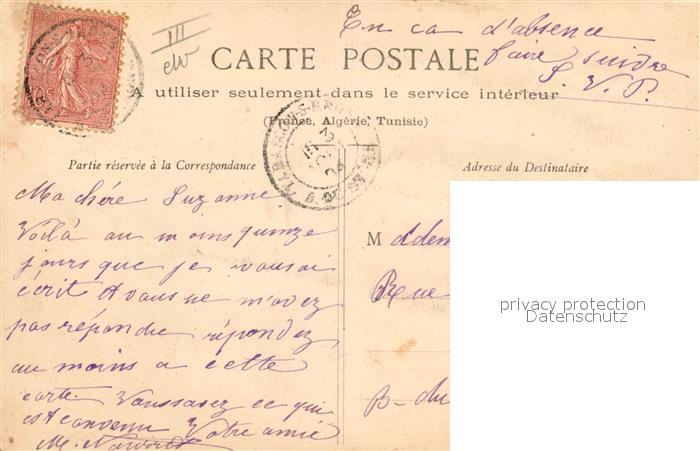 En ca d'absence
faire suidre
S. V. P.
III
CARTE POSTALE
A utiliser seulement dans le service intérieur
(France, Algérie, Tunisie)
Partie réservée à la Correspondance
Ma chére Suzanne
Voilà au moins quinze
jours que je vousai
écrit et vous ne m'avez
pas répondu répondez
au moins a cette
carte. Voussavez ce qui
est convenu Votre amie
M.
Adresse du Destinataire
Mddem
Rue
B- du
privacy protection
Datenschutz